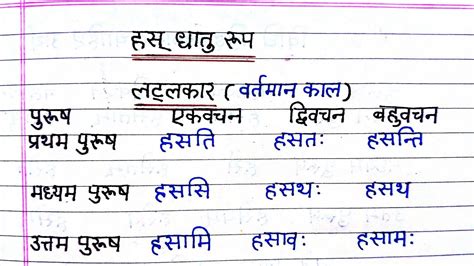 हस् धातु रूप
लट्लकार ( वर्तमान काल)
पुरूष एकवचन द्विवचन बहुवचन
प्रथम पुरूष हसति हसतः हसन्ति
मध्यम पुरूष हससि हसथः हसथ
उत्तम पुरूष हसामि हसावः हसामः